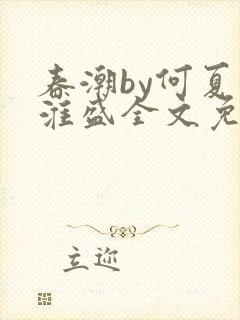 春潮by何夏
淮盛全文免
立迩